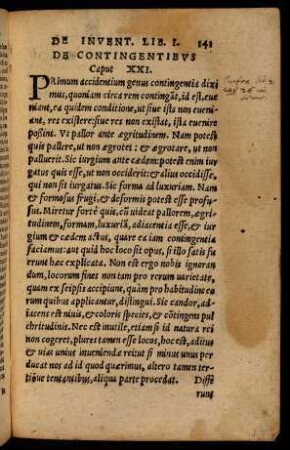 DE INVENT. LIB. I. 141
DE CONTINGENTIBVS
Caput XXI.
PRimum accidentium genus contingentia dixi
mus, quoniam circa rem contingãt, id est, eue
niant, ea quidem conditione, ut siue ista non eueni
ant, res existere: siue res non existat, ista euenire
possint. Vt pallor ante ægritudinem. Nam potest
quis pallere, ut non ægrotet: & ægrotare, ut non
palluerit. Sic iurgium ante cædem: potest enim iur
gatus quis esse, ut non occiderit: & alius occidisse,
qui non sit iurgatus. Sic forma ad luxuriam. Nam
& formosus frugi, & deformis potest esse profu-
sus. Miretur fortè quis, cũ uideat pallorem, ægri-
tudinem, formam, luxuriã, adiacentia esse, & iur
gium & cædem actus, quare ea iam contingentia
faciamus: aut quid hoc loco sit opus, si illo satis fu
runt hæc explicata. Non est ergo nobis ignoran
dum, locorum fines non tam pro rerum uarietate,
quam ex seipsis accipiune, quàm pro habitudine ea
rum quibus applicantur, distingui. Sic candor, adi-
iacens est niuis, & coloris species, & cõtingens pul
chritudinis. Nec est inutile, etiam si id natura rei
non cogeret, plures tamen esse locos, hoc est, aditus
& uias unius inueniendæ rei: ut si minus unus per
ducat nos ad id quod quærimus, altero tamen ter-
tioue tentantibus, aliqua parte procedat. Diffe
runt